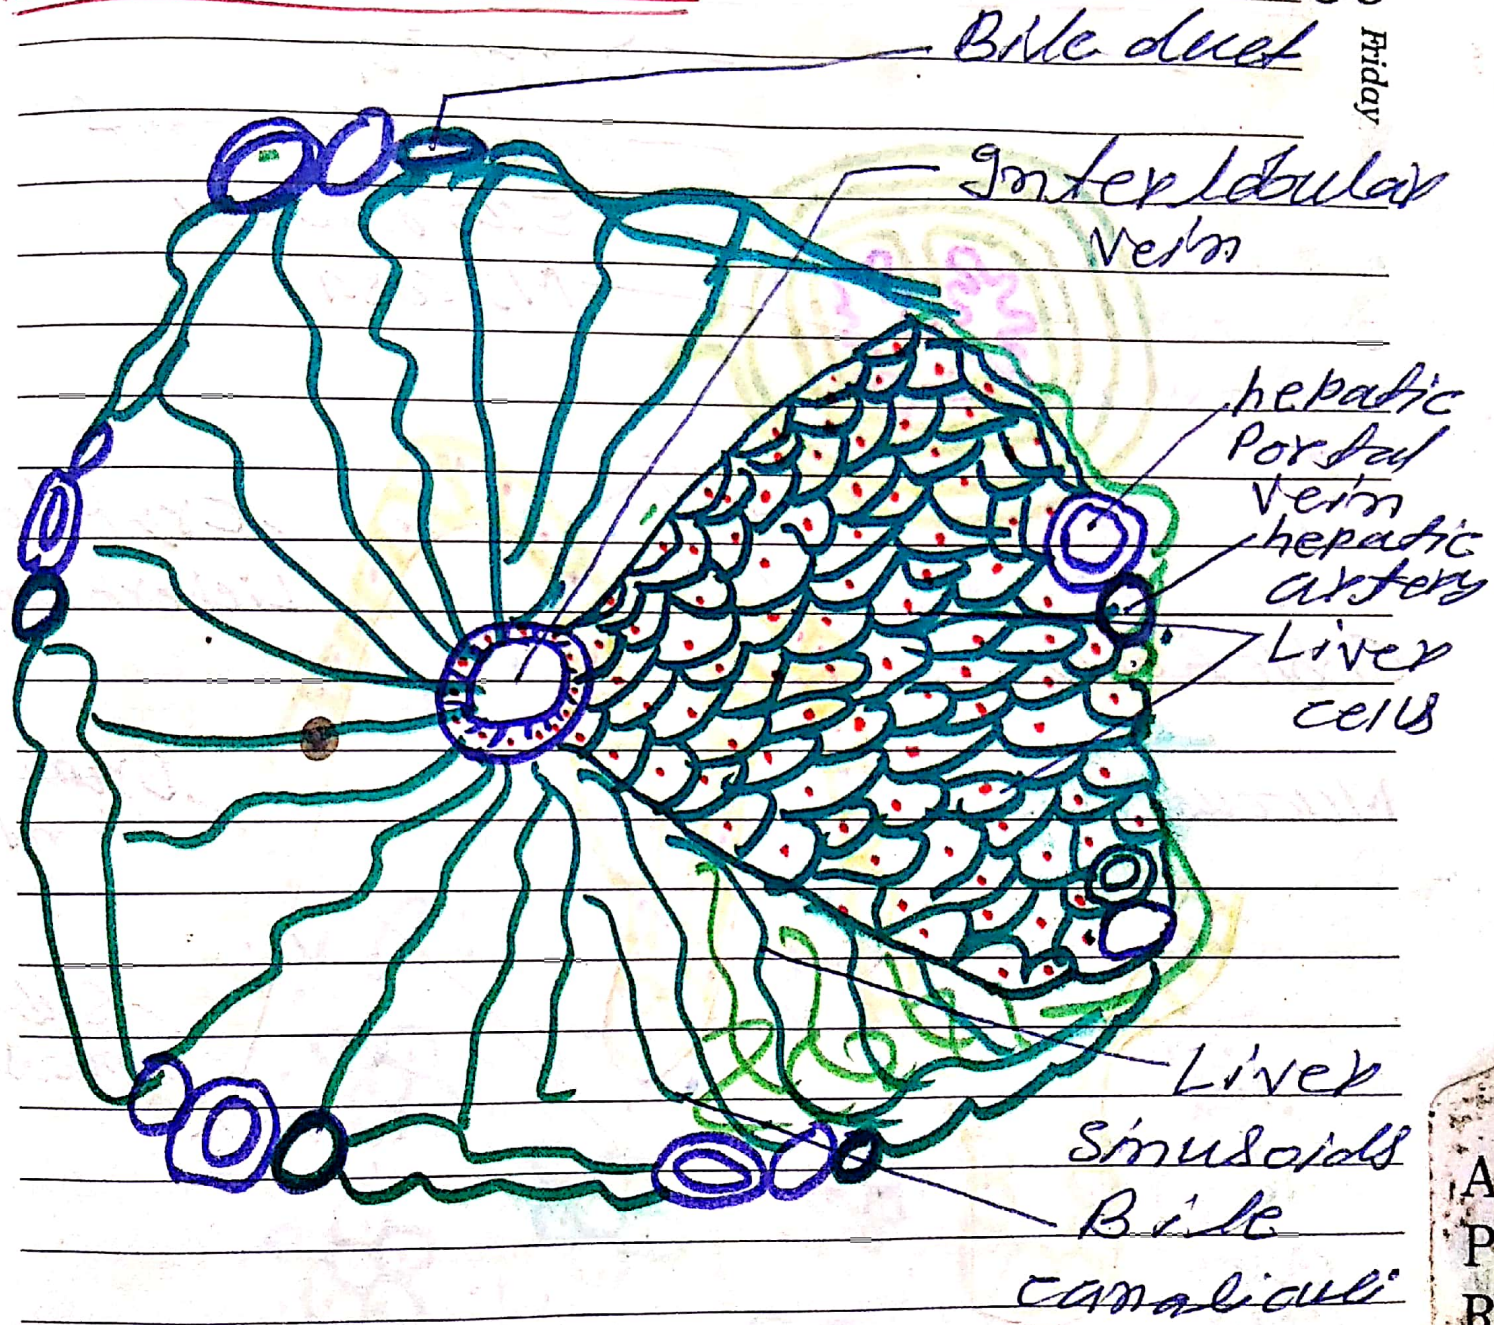 Friday
Bile duct
Interlobular
vein
hepatic
Portal
vein
hepatic
artery
Liver
cells
Liver
sinusoids
Bile
canaliculi
A
P